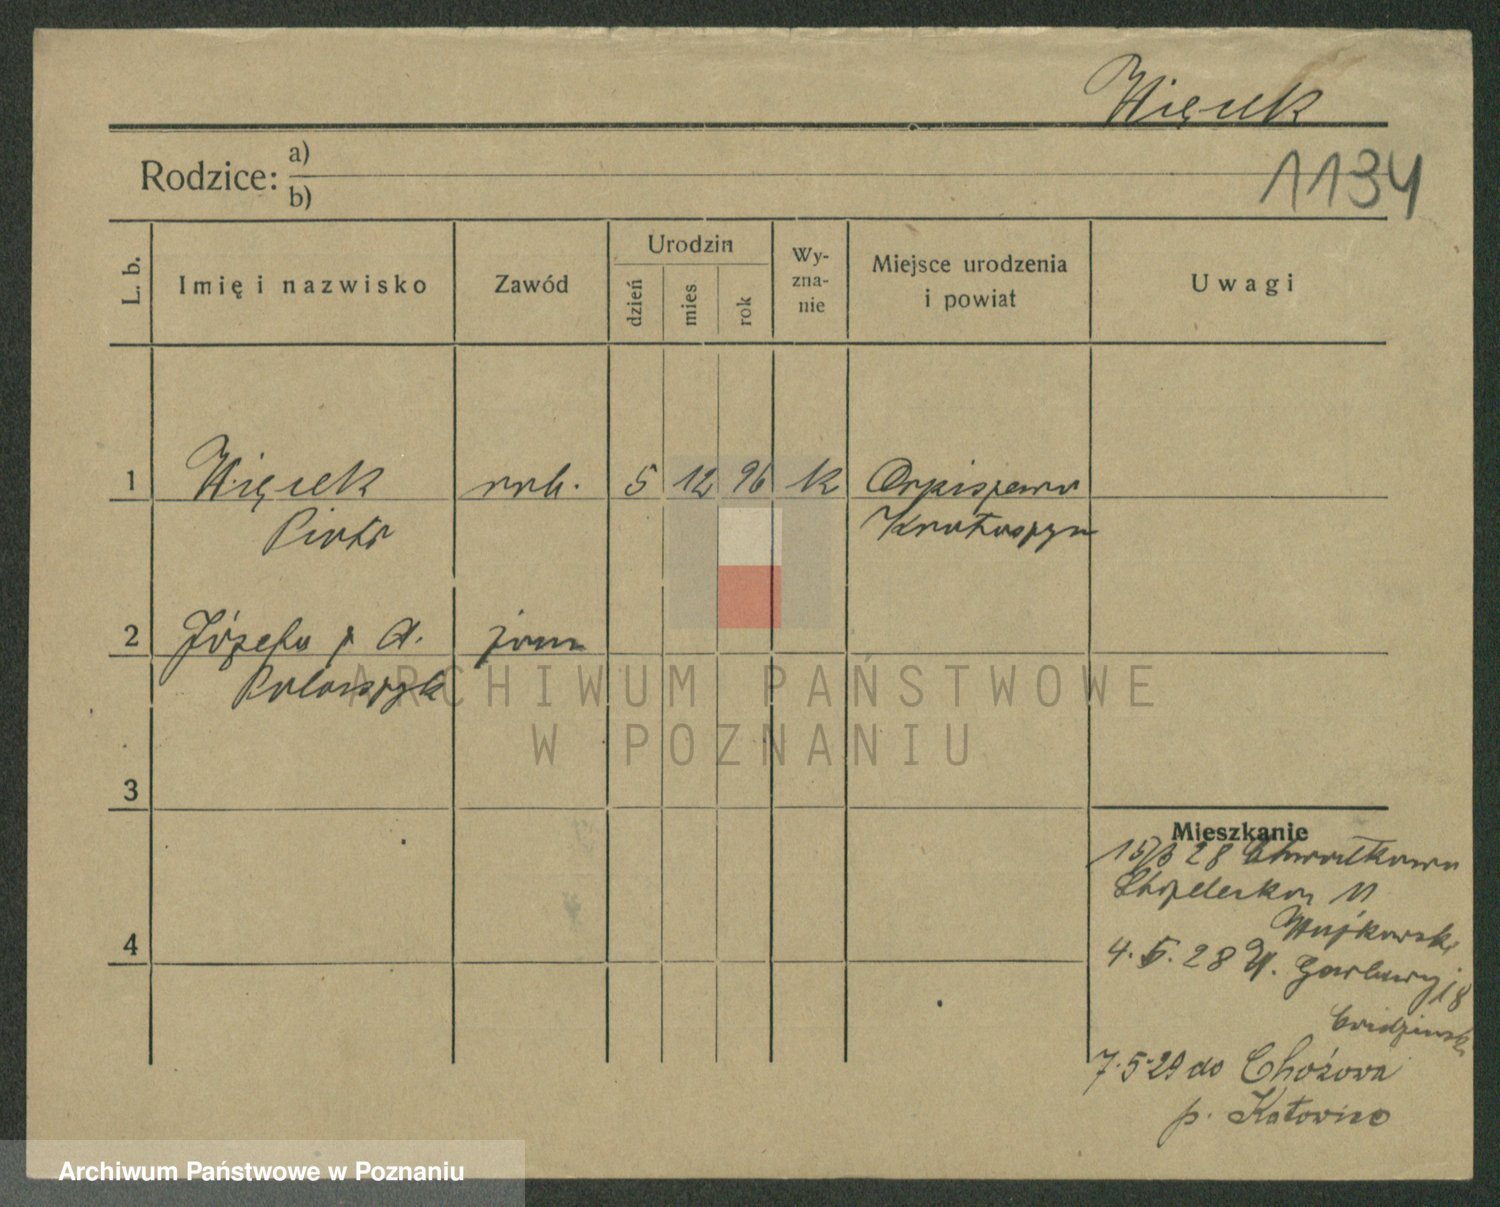 Więcek
1134
Rodzice: a)
b)
L. b.
Imię i nazwisko
Zawód
Urodzin
dzień
mies
rok
Wy-
zna-
nie
Miejsce urodzenia
i powiat
Uwagi
1 Więcek rob. 5 12 96 k Orpiszewo
Piotr Krotoszyn
2 Józefa z d. żona
Ratajczyk
3
4
Mieszkanie
15/3 28
11
4. 5. 28 W. Garbary 18
7.5.29 do Chożowa
p. Katowice
ARCHIWUM PAŃSTWOWE
W POZNANIU
Archiwum Państwowe w Poznaniu